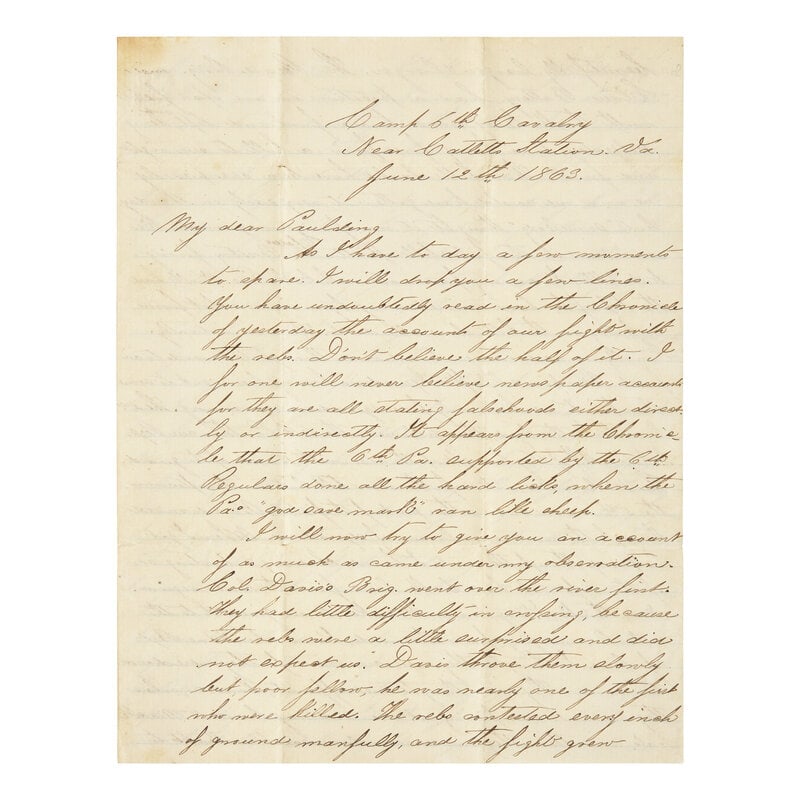 Camp 6th Cavalry
Near Catletts Station. Va.
June 12th 1863.
My dear Paulding
As I have to day a few moments
to spare. I will drop you a few lines.
You have undoubtedly read in the Chronicle
of yesterday the accounts of our fight with
the rebs. Don't believe the half of it. I
for one will never believe newspaper accounts
for they are all stating falsehoods either direct-
ly or indirectly. It appears from the Chronic-
le that the 6th Pa. supported by the 6th
Regulars done all the hard licks, when the
Pa's "god save mark" ran like sheep.
I will now try to give you an account
of as much as came under my observation.
Col. Davis's Brig. went over the river first.
They had little difficulty in crossing, because
the rebs were a little surprised and did
not expect us. Davis throve them slowly
but poor fellow, he was nearly one of the first
who were killed. The rebs contested every inch
of ground manfully, and the fight grew